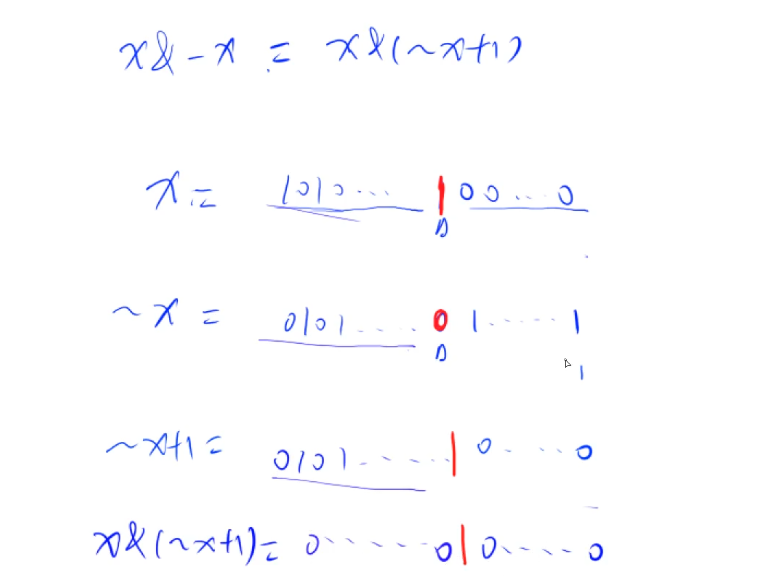 x&-x = x&(~x+1)
x= 1010... 100...0
~x = 0101.... 01.....1
1
~x+1= 0101.....10....0
x&(~x+1)= 0.....010....0